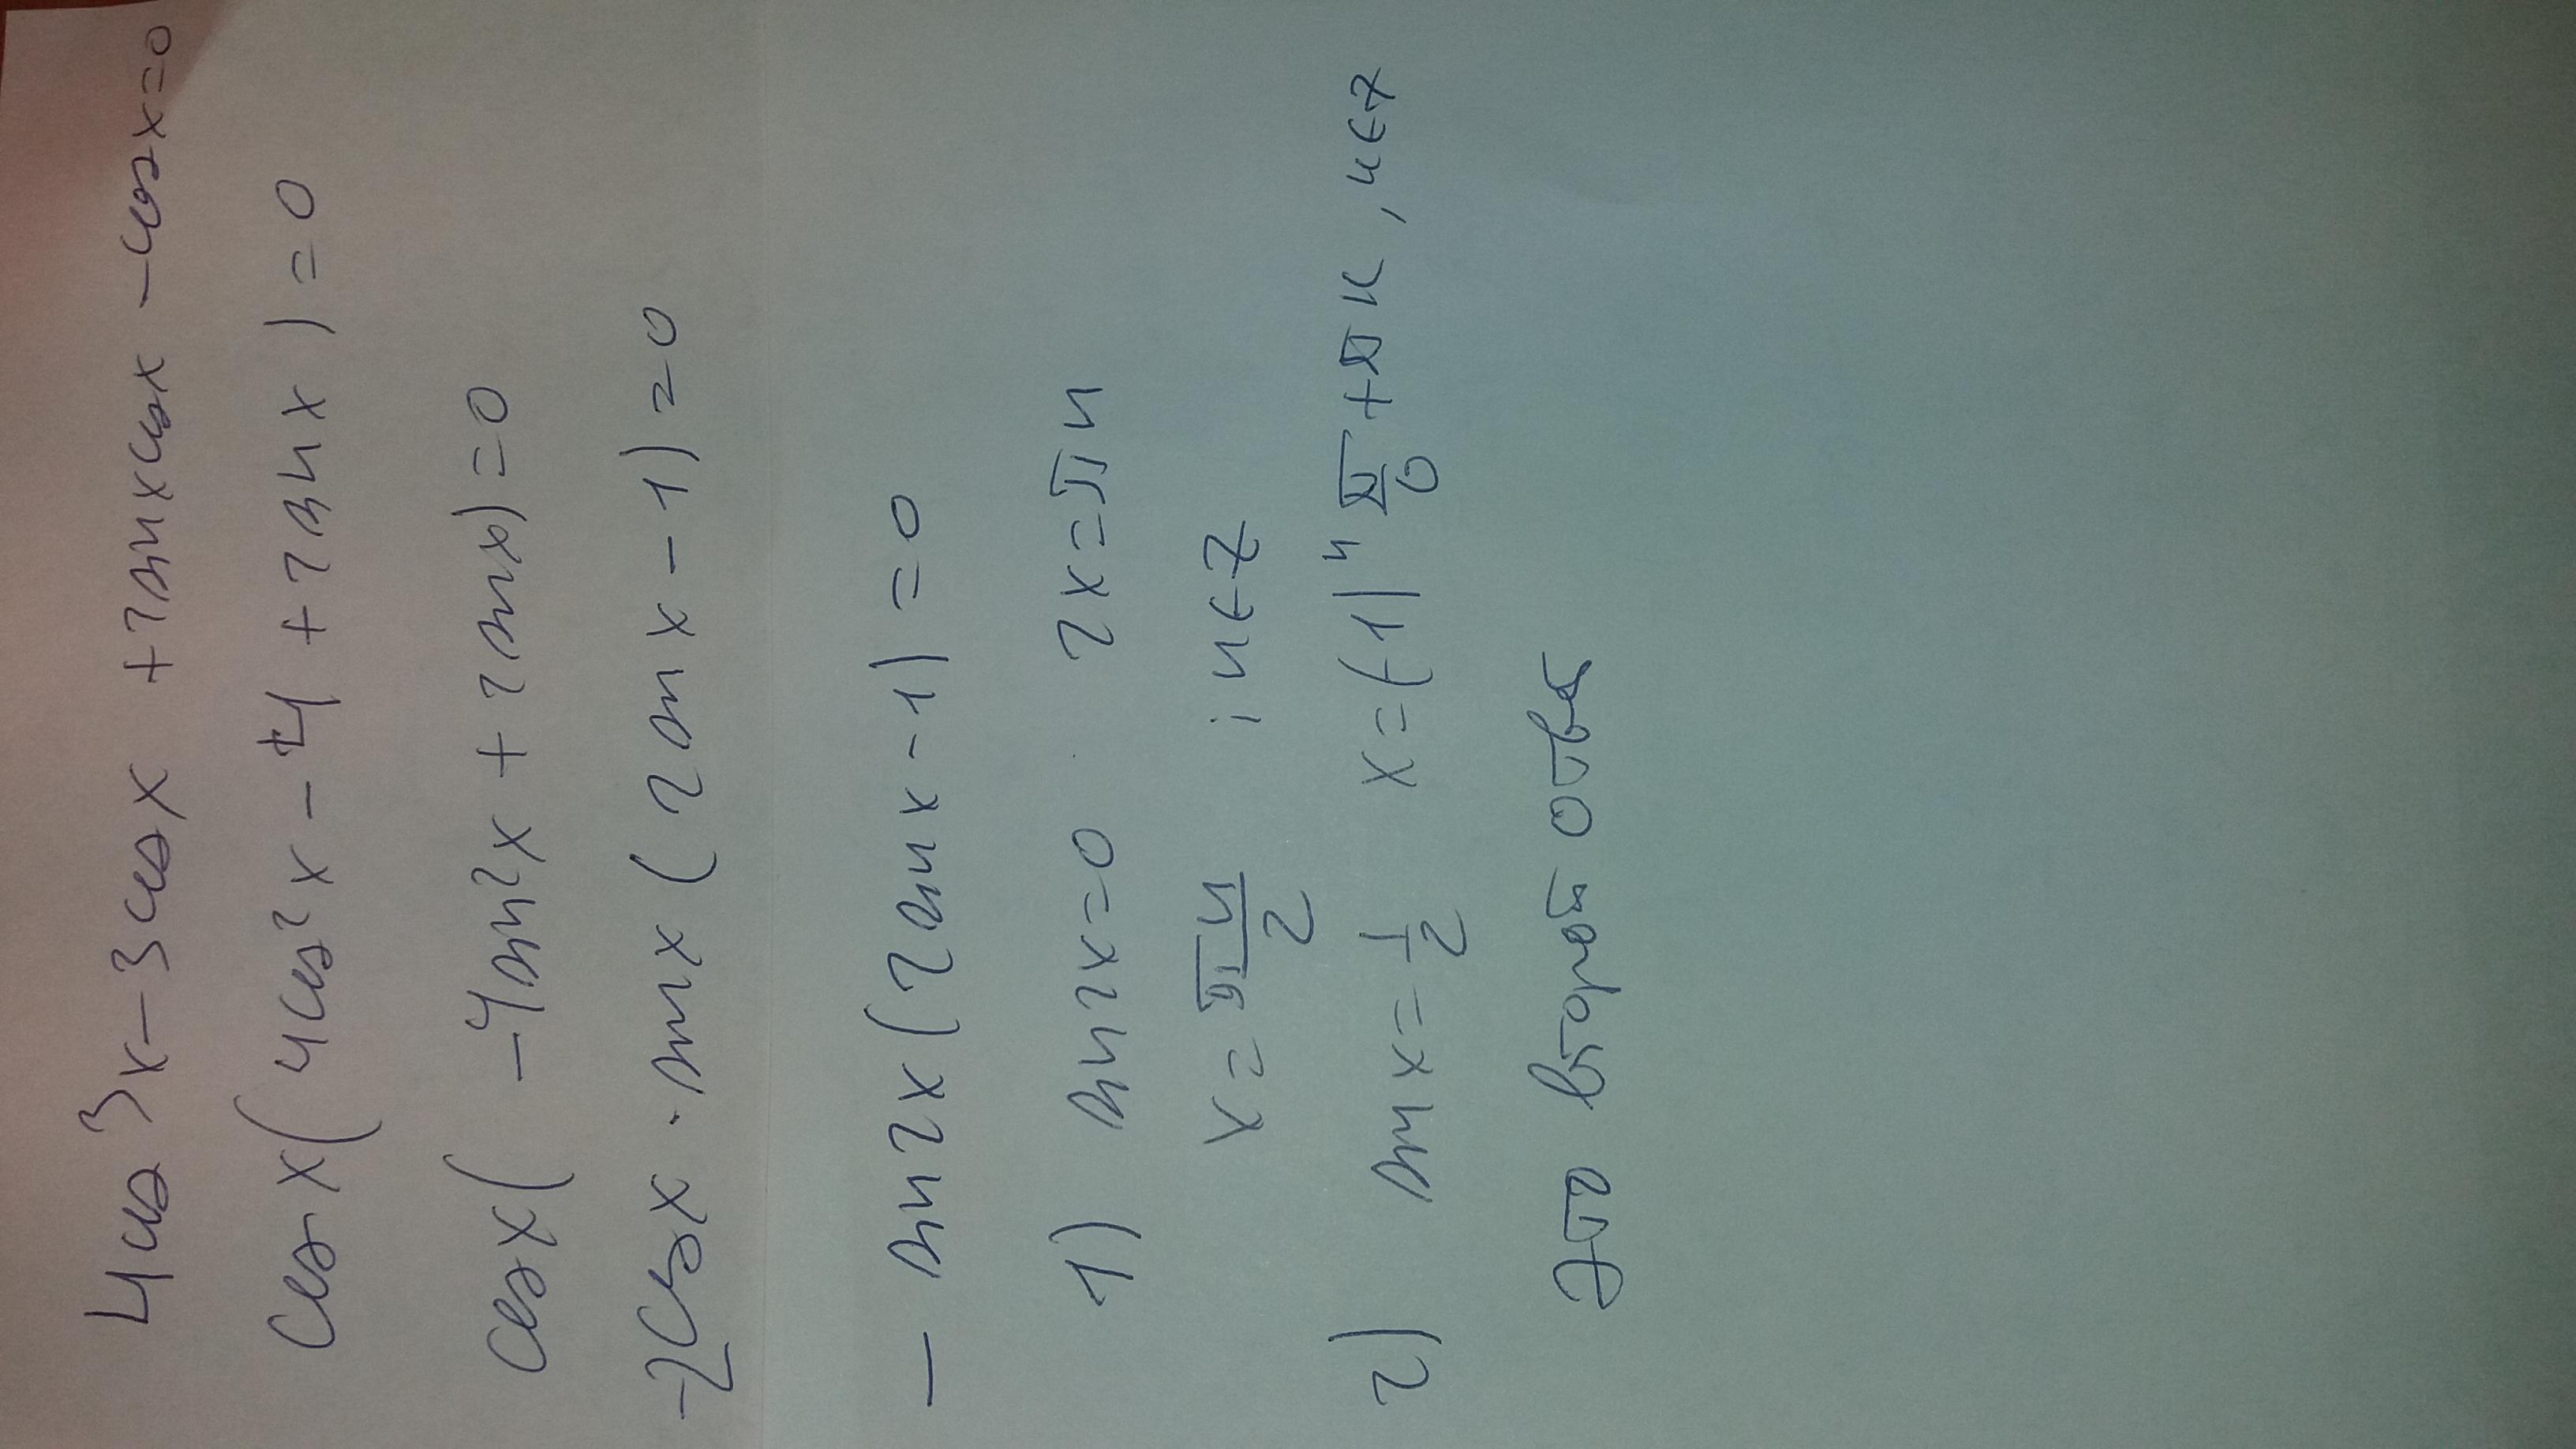 4cos³x-3cosx+2sinxcosx-cosx=0
cosx(4cos²x-4+2sinx)=0
cosx(-4sin²x+2sinx)=0
-2cosx·sinx(2sinx-1)=0
-sin2x(2sinx-1)=0
1) sin2x=0 2x=πn
x=πn/2 ; n∈Z
2) sinx=1/2 x=(-1)ⁿ π/6+πn, n∈Z
это второй ответ